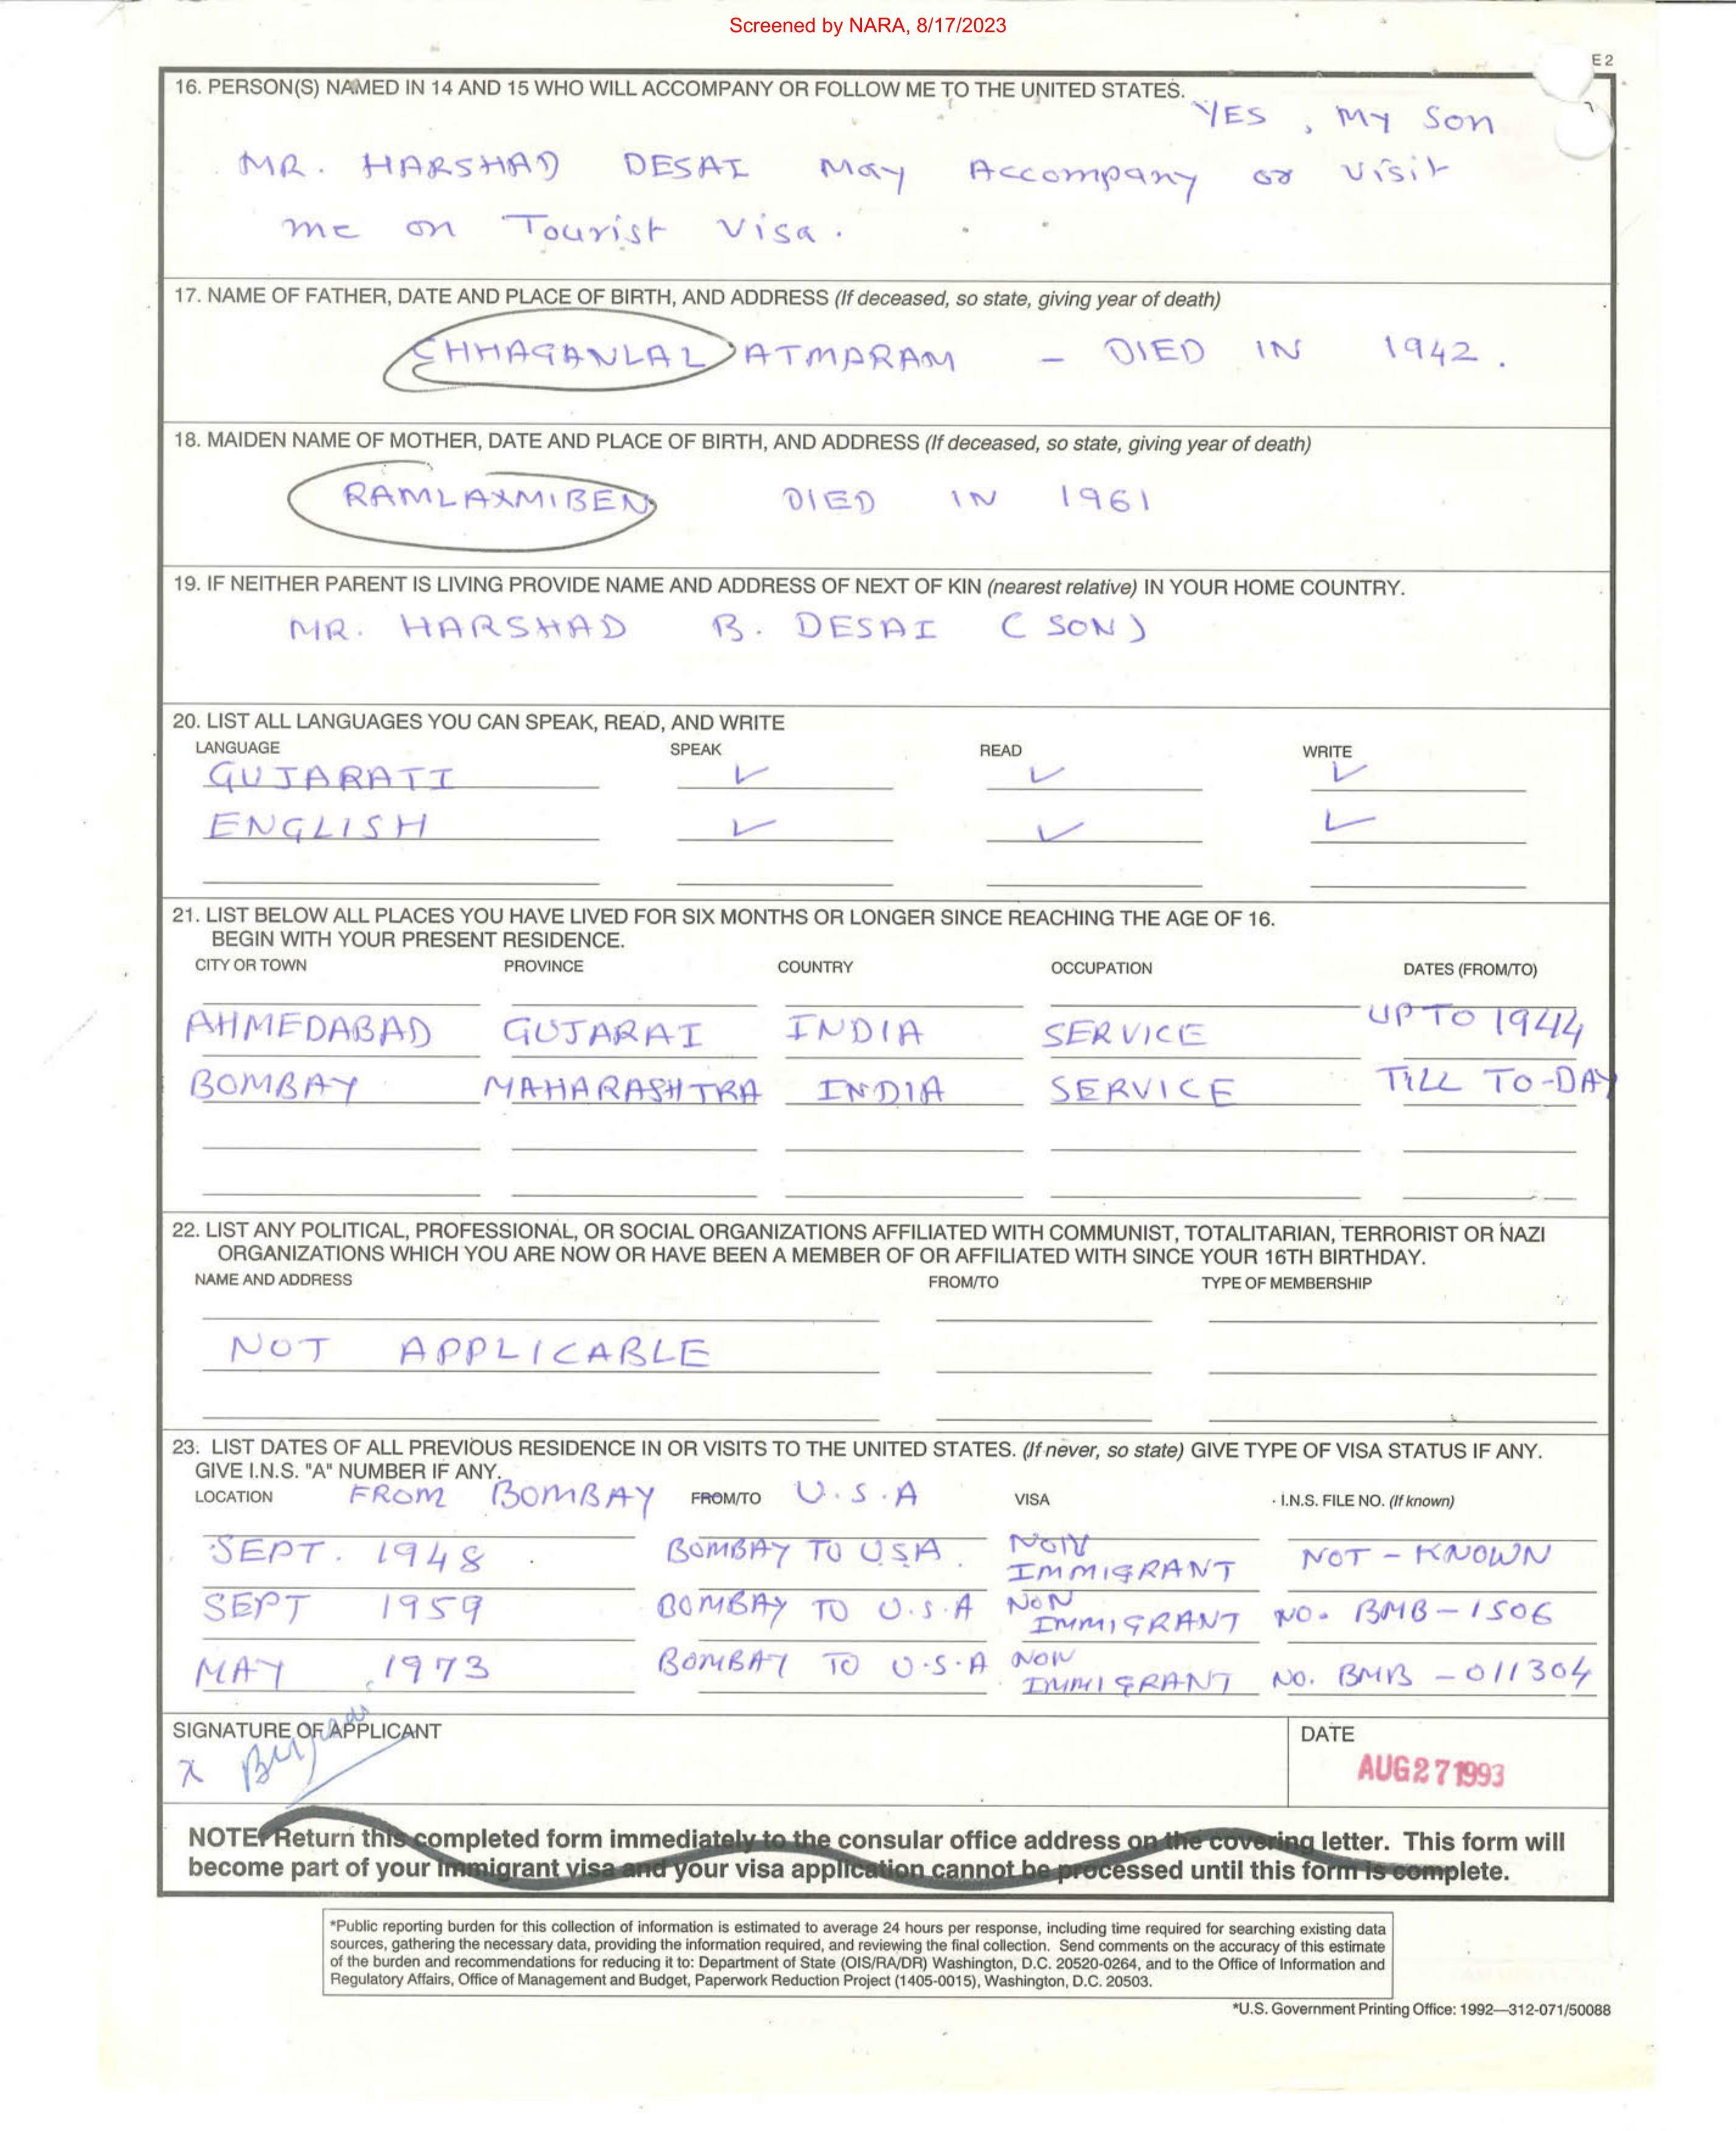 Screened by NARA, 8/17/2023
E 2
16. PERSON(S) NAMED IN 14 AND 15 WHO WILL ACCOMPANY OR FOLLOW ME TO THE UNITED STATES.
YES, MY SON
MR. HARSHAD DESAI May Accompany or visit
me on Tourist Visa.
17. NAME OF FATHER, DATE AND PLACE OF BIRTH, AND ADDRESS (If deceased, so state, giving year of death)
CHHAGANLAL ATMARAM - DIED IN 1942.
18. MAIDEN NAME OF MOTHER, DATE AND PLACE OF BIRTH, AND ADDRESS (If deceased, so state, giving year of death)
RAMLAXMIBEN DIED IN 1961
19. IF NEITHER PARENT IS LIVING PROVIDE NAME AND ADDRESS OF NEXT OF KIN (nearest relative) IN YOUR HOME COUNTRY.
MR. HARSHAD B. DESAI (SON)
20. LIST ALL LANGUAGES YOU CAN SPEAK, READ, AND WRITE
LANGUAGE SPEAK READ WRITE
GUJARATI ✓ ✓ ✓
ENGLISH ✓ ✓ ✓
21. LIST BELOW ALL PLACES YOU HAVE LIVED FOR SIX MONTHS OR LONGER SINCE REACHING THE AGE OF 16.
BEGIN WITH YOUR PRESENT RESIDENCE.
CITY OR TOWN PROVINCE COUNTRY OCCUPATION DATES (FROM/TO)
AHMEDABAD GUJARAT INDIA SERVICE UP TO 1944
BOMBAY MAHARASHTRA INDIA SERVICE TILL TO-DAY
22. LIST ANY POLITICAL, PROFESSIONAL, OR SOCIAL ORGANIZATIONS AFFILIATED WITH COMMUNIST, TOTALITARIAN, TERRORIST OR NAZI
ORGANIZATIONS WHICH YOU ARE NOW OR HAVE BEEN A MEMBER OF OR AFFILIATED WITH SINCE YOUR 16TH BIRTHDAY.
NAME AND ADDRESS FROM/TO TYPE OF MEMBERSHIP
NOT APPLICABLE
23. LIST DATES OF ALL PREVIOUS RESIDENCE IN OR VISITS TO THE UNITED STATES. (If never, so state) GIVE TYPE OF VISA STATUS IF ANY.
GIVE I.N.S. "A" NUMBER IF ANY.
LOCATION FROM BOMBAY FROM/TO U.S.A VISA I.N.S. FILE NO. (If known)
SEPT. 1948 BOMBAY TO USA. NON IMMIGRANT NOT-KNOWN
SEPT 1959 BOMBAY TO U.S.A NON IMMIGRANT NO. BMB-1506
MAY 1973 BOMBAY TO U.S.A NON IMMIGRANT NO. BMB-011304
SIGNATURE OF APPLICANT DATE
X
AUG 27 1993
NOTE: Return this completed form immediately to the consular office address on the covering letter. This form will
become part of your immigrant visa and your visa application cannot be processed until this form is complete.
*Public reporting burden for this collection of information is estimated to average 24 hours per response, including time required for searching existing data
sources, gathering the necessary data, providing the information required, and reviewing the final collection. Send comments on the accuracy of this estimate
of the burden and recommendations for reducing it to: Department of State (OIS/RA/DR) Washington, D.C. 20520-0264, and to the Office of Information and
Regulatory Affairs, Office of Management and Budget, Paperwork Reduction Project (1405-0015), Washington, D.C. 20503.
*U.S. Government Printing Office: 1992—312-071/50088